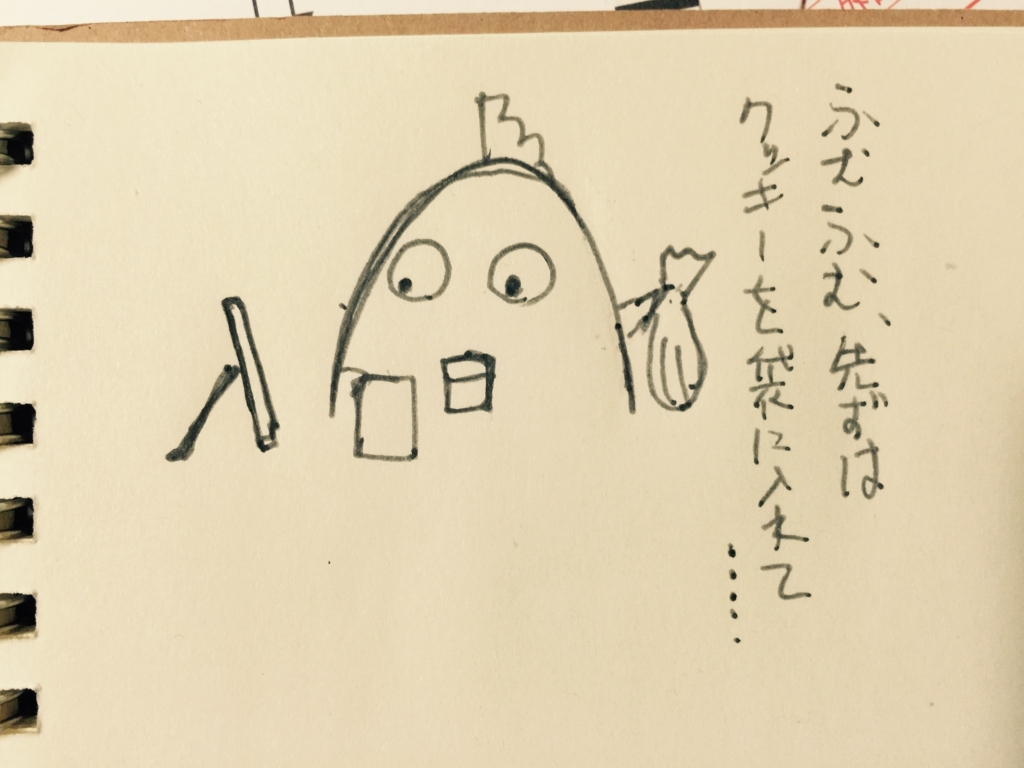 ふむふむ、先ずは
クッキーを袋に入れて
……